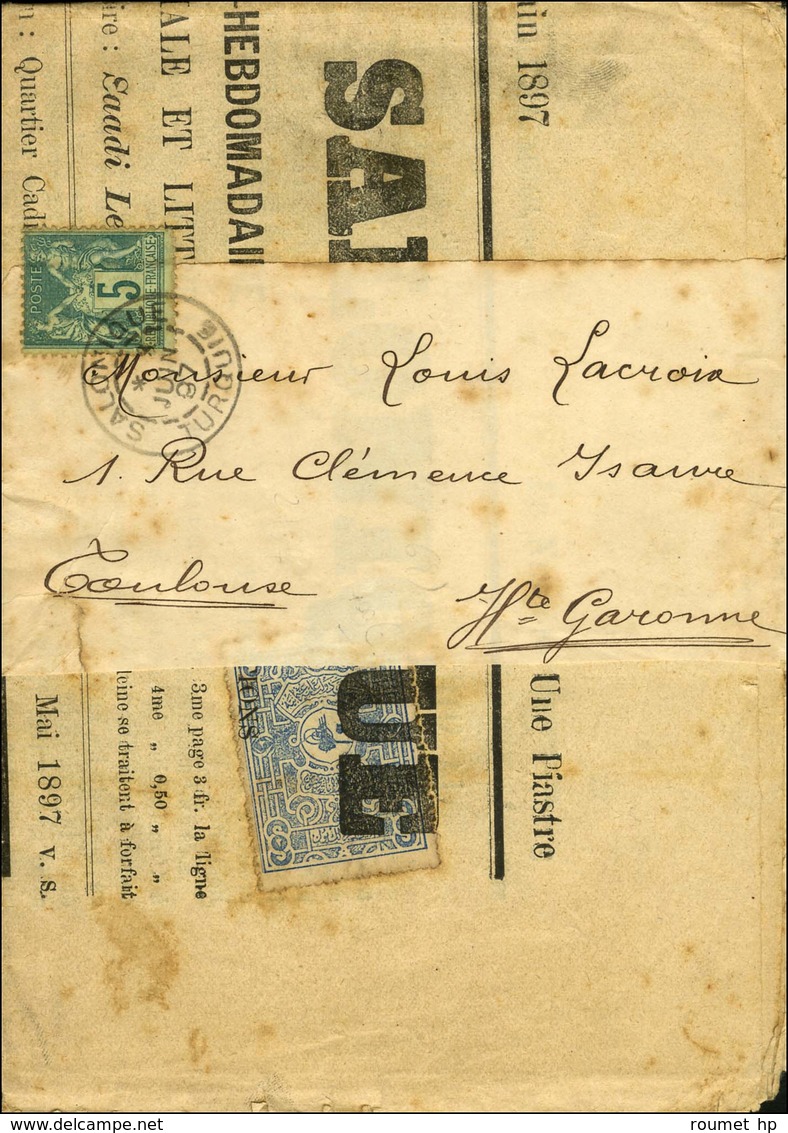 uin 1897
SA
-HEBDOMADAI
ALE ET LITT
ire : Saadi Le
n : Quartier Cadi
POSTES
5
REPUBLIQUE FRANÇAISE
TURQUIE
JUIN
97
Monsieur Louis Lacroix
1. Rue Clémence Isaure
Toulouse
Hte Garonne
Une Piastre
UE
3me page 3 fr. la ligne
4me „ 0,50 „ „
leine se traitent à forfait
Mai 1897 v. s.
roumet hp